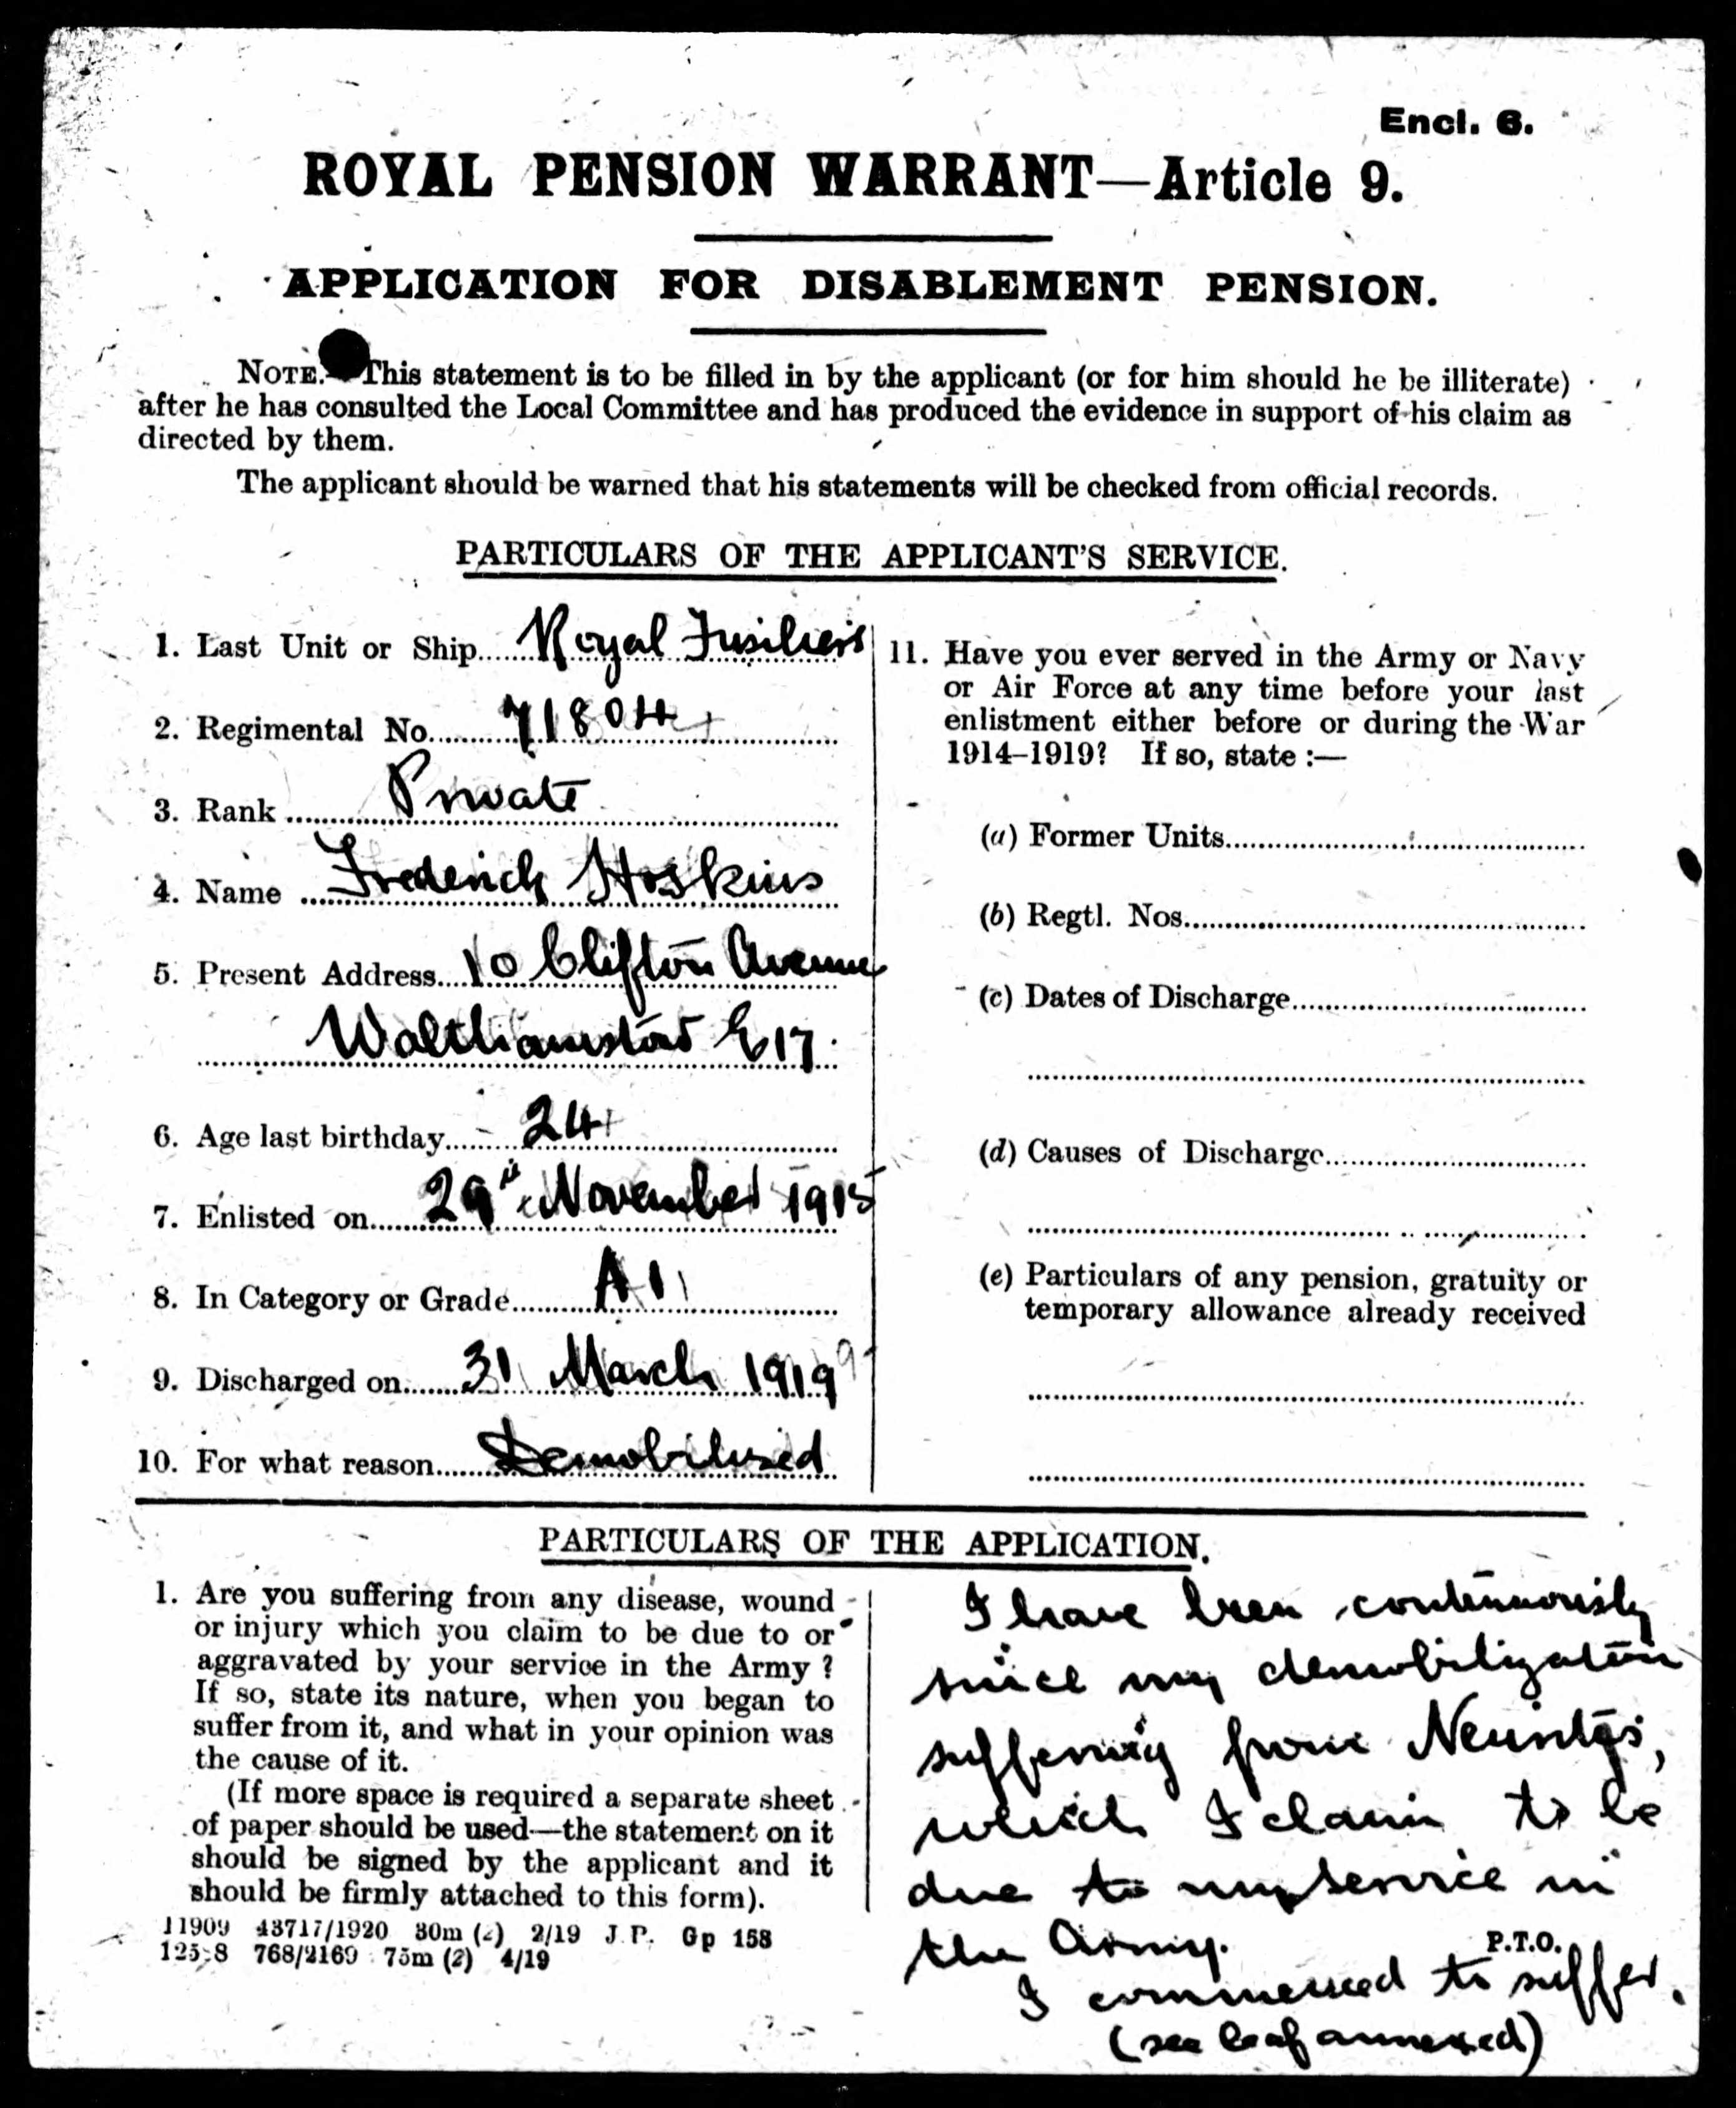 Encl. 6.
ROYAL PENSION WARRANT—Article 9.
APPLICATION FOR DISABLEMENT PENSION.
NOTE.—This statement is to be filled in by the applicant (or for him should he be illiterate)
after he has consulted the Local Committee and has produced the evidence in support of his claim as
directed by them.
The applicant should be warned that his statements will be checked from official records.
PARTICULARS OF THE APPLICANT'S SERVICE.
1. Last Unit or Ship Royal Fusiliers
2. Regimental No. 71804
3. Rank Private
4. Name Frederick Hoskins
5. Present Address 10 Clifton Avenue
Walthamstow E17.
6. Age last birthday 24
7. Enlisted on 29th November 1915
8. In Category or Grade A1
9. Discharged on 31 March 1919
10. For what reason Demobilised
11. Have you ever served in the Army or Navy
or Air Force at any time before your last
enlistment either before or during the War
1914–1919? If so, state :—
(a) Former Units
(b) Regtl. Nos.
(c) Dates of Discharge
(d) Causes of Discharge
(e) Particulars of any pension, gratuity or
temporary allowance already received
PARTICULARS OF THE APPLICATION.
1. Are you suffering from any disease, wound
or injury which you claim to be due to or
aggravated by your service in the Army ?
If so, state its nature, when you began to
suffer from it, and what in your opinion was
the cause of it.
(If more space is required a separate sheet
of paper should be used—the statement on it
should be signed by the applicant and it
should be firmly attached to this form).
I have been continuously
since my demobilization
suffering from Neuritis,
which I claim to be
due to my service in
the Army.
I commenced to suffer
(see leaf annexed)
P.T.O.
11909 43717/1920 30m (2) 2/19 J.P. Gp 158
768/2169 75m (2) 4/19